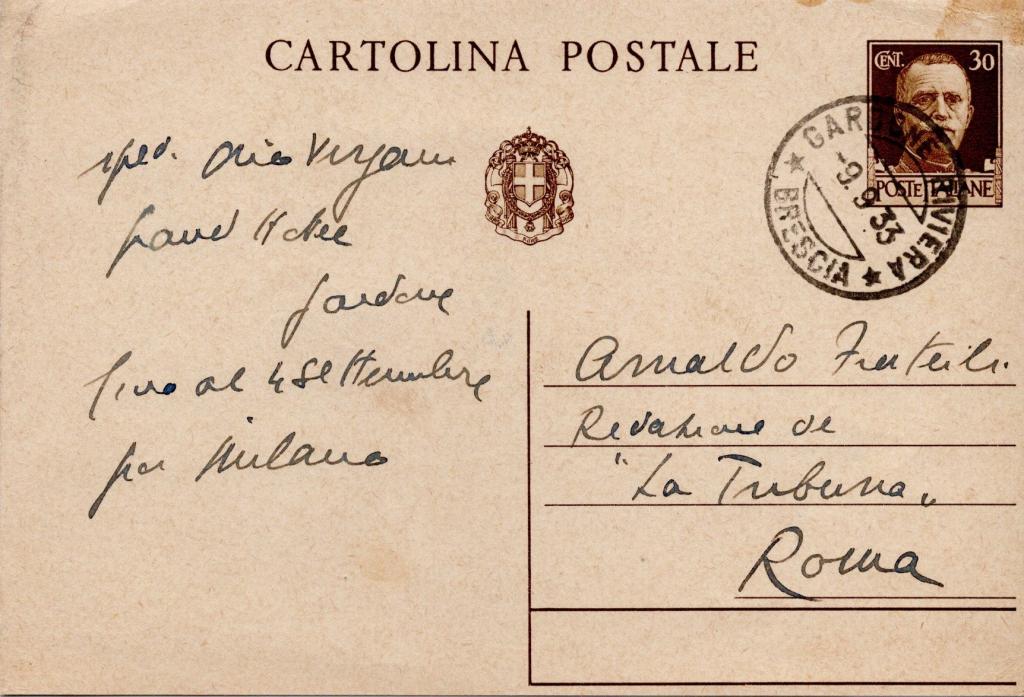 CARTOLINA POSTALE
CENT. 30
POSTE ITALIANE
GARDONE RIVIERA
-9.9.33
★ BRESCIA ★
sped. Orio Vergani
Grand Hotel
Gardone
fino al 4 settembre
poi Milano
Arnaldo Frateili
Redazione de
"La Tribuna"
Roma